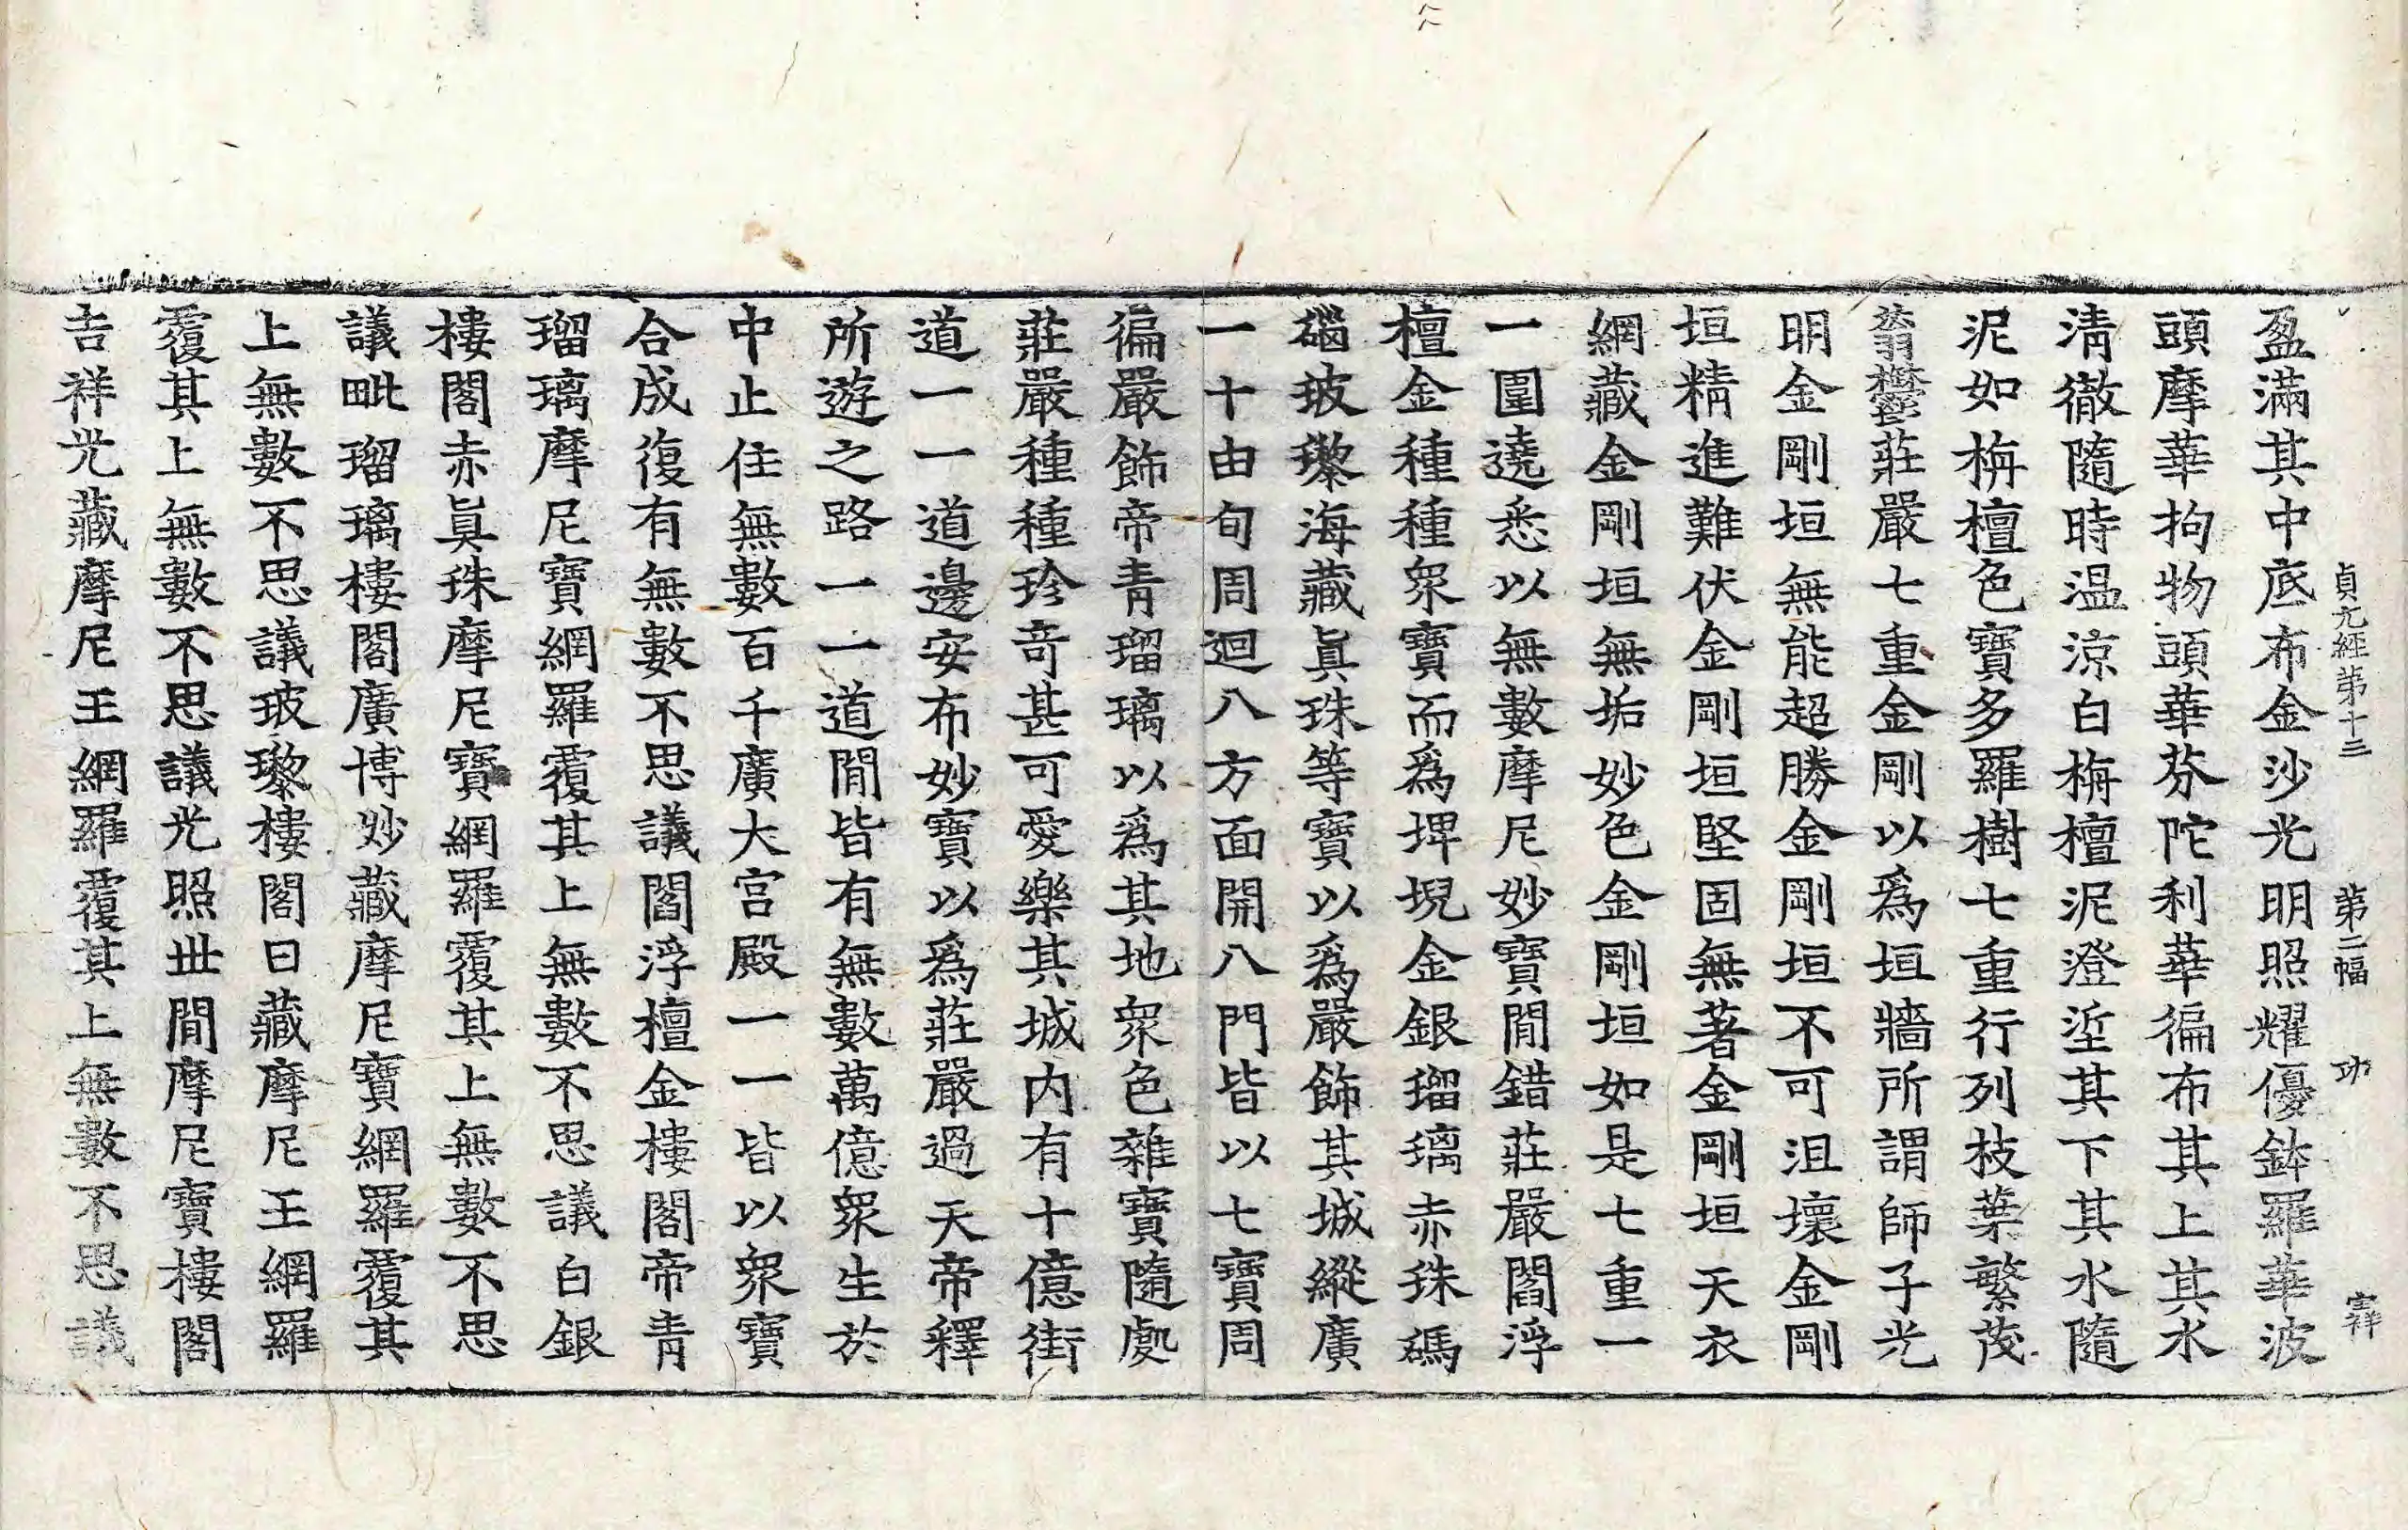 貞元經第十三 第二幅 功 宝祥
盈滿其中底布金沙光明照耀優鉢羅華波
頭摩華拘物頭華芬陀利華徧布其上其水
淸徹隨時温涼白栴檀泥澄埿其下其水隨
泥如栴檀色寶多羅樹七重行列枝葉繁茂
蓊鬱莊嚴七重金剛以爲垣牆所謂師子光
明金剛垣無能超勝金剛垣不可沮壞金剛
垣精進難伏金剛垣堅固無著金剛垣天衣
網藏金剛垣無垢妙色金剛垣如是七重一
一圍遶悉以無數摩尼妙寶閒錯莊嚴閻浮
檀金種種衆寶而爲埤堄金銀瑠璃赤珠碼
碯玻瓈海藏眞珠等寶以爲嚴飾其城縱廣
一十由旬周迴八方面開八門皆以七寶周
徧嚴飾帝青瑠璃以爲其地衆色雜寶隨處
莊嚴種種珍奇甚可愛樂其城内有十億街
道一一道邊安布妙寶以爲莊嚴過天帝釋
所遊之路一一道閒皆有無數萬億衆生於
中止住無數百千廣大宮殿一一皆以衆寶
合成復有無數不思議閻浮檀金樓閣帝青
瑠璃摩尼寶網羅覆其上無數不思議白銀
樓閣赤眞珠摩尼寶網羅覆其上無數不思
議毗瑠璃樓閣廣博妙藏摩尼寶網羅覆其
上無數不思議玻瓈樓閣日藏摩尼王網羅
覆其上無數不思議光照世間摩尼寶樓閣
吉祥光藏摩尼王網羅覆其上無數不思議